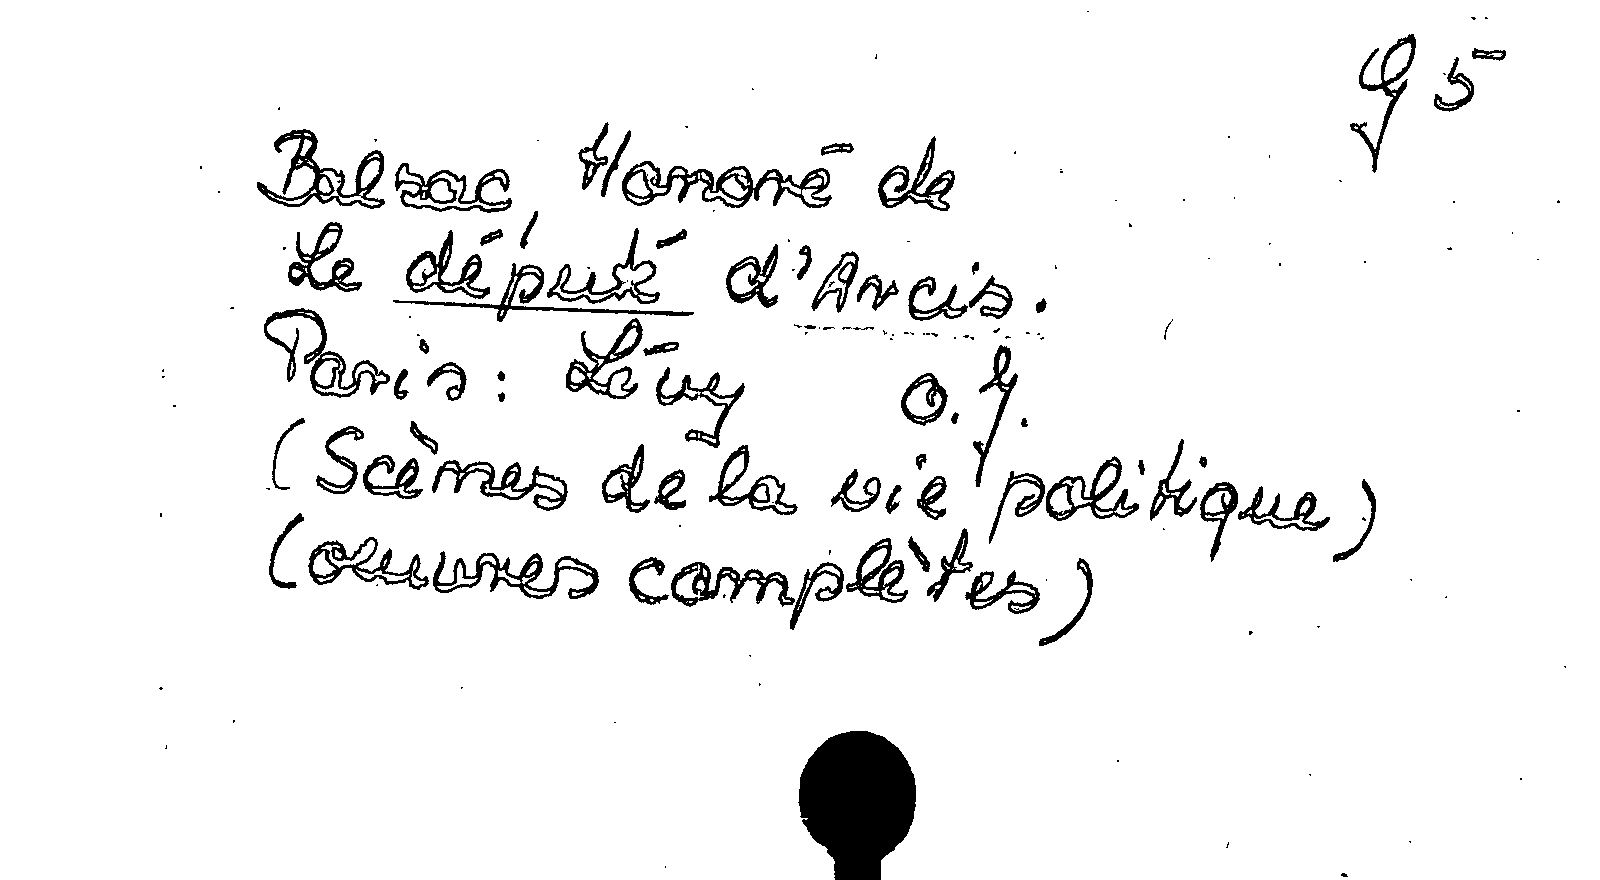 G 5
Balzac, Honoré de
Le député d'Arcis.
Paris: Lévy o.J.
(Scènes de la vie politique)
(oeuvres complètes)